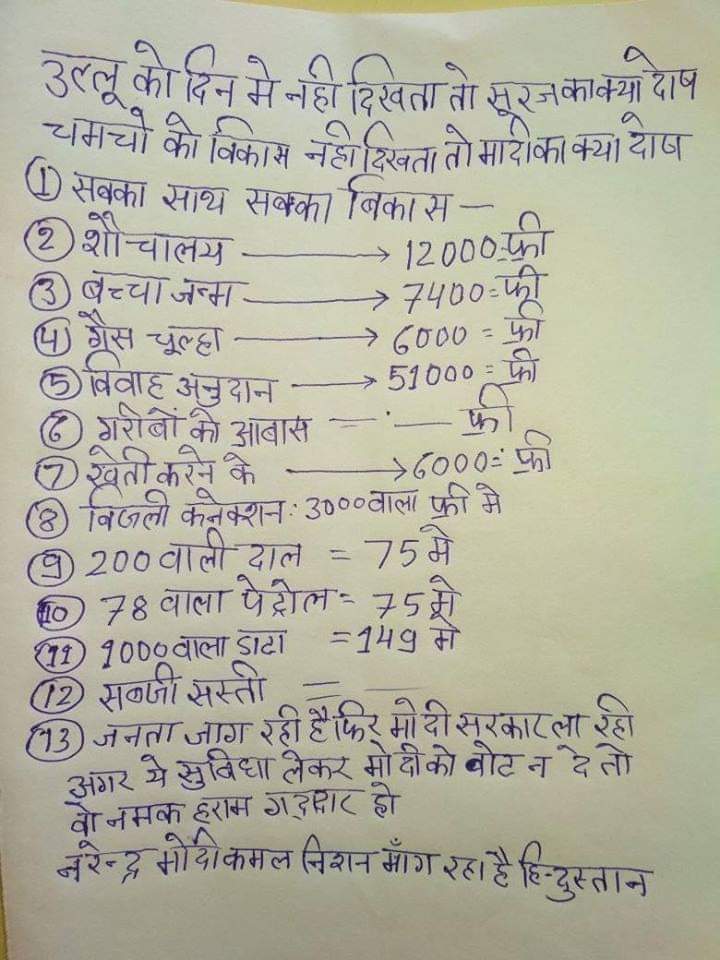 उल्लू को दिन मे नही दिखता तो सूरज का क्या दोष
चमचो को विकास नही दिखता तो मोदी का क्या दोष
① सबका साथ सबका बिकास —
② शौचालय ⟶ 12000=फ्री
③ बच्चा जन्म ⟶ 7400=फ्री
④ गैस चूल्हा ⟶ 6000 = फ्री
⑤ विवाह अनुदान ⟶ 51000 = फ्री
⑥ गरीबों को आबास — — फ्री
⑦ खेती करने के ⟶ 6000= फ्री
⑧ बिजली कनेक्शन: 3000 वाला फ्री मे
⑨ 200 वाली दाल = 75 मे
⑩ 78 वाला पेट्रोल = 75 मे
⑪ 1000 वाला डाटा = 149 मे
⑫ सब्जी सस्ती = —
⑬ जनता जाग रही है फिर मोदी सरकार ला रही
अगर ये सुबिधा लेकर मोदी को वोट न दे तो
वो नमक हराम गद्दार हो
नरेन्द्र मोदी कमल निशान माँग रहा है हिन्दुस्तान